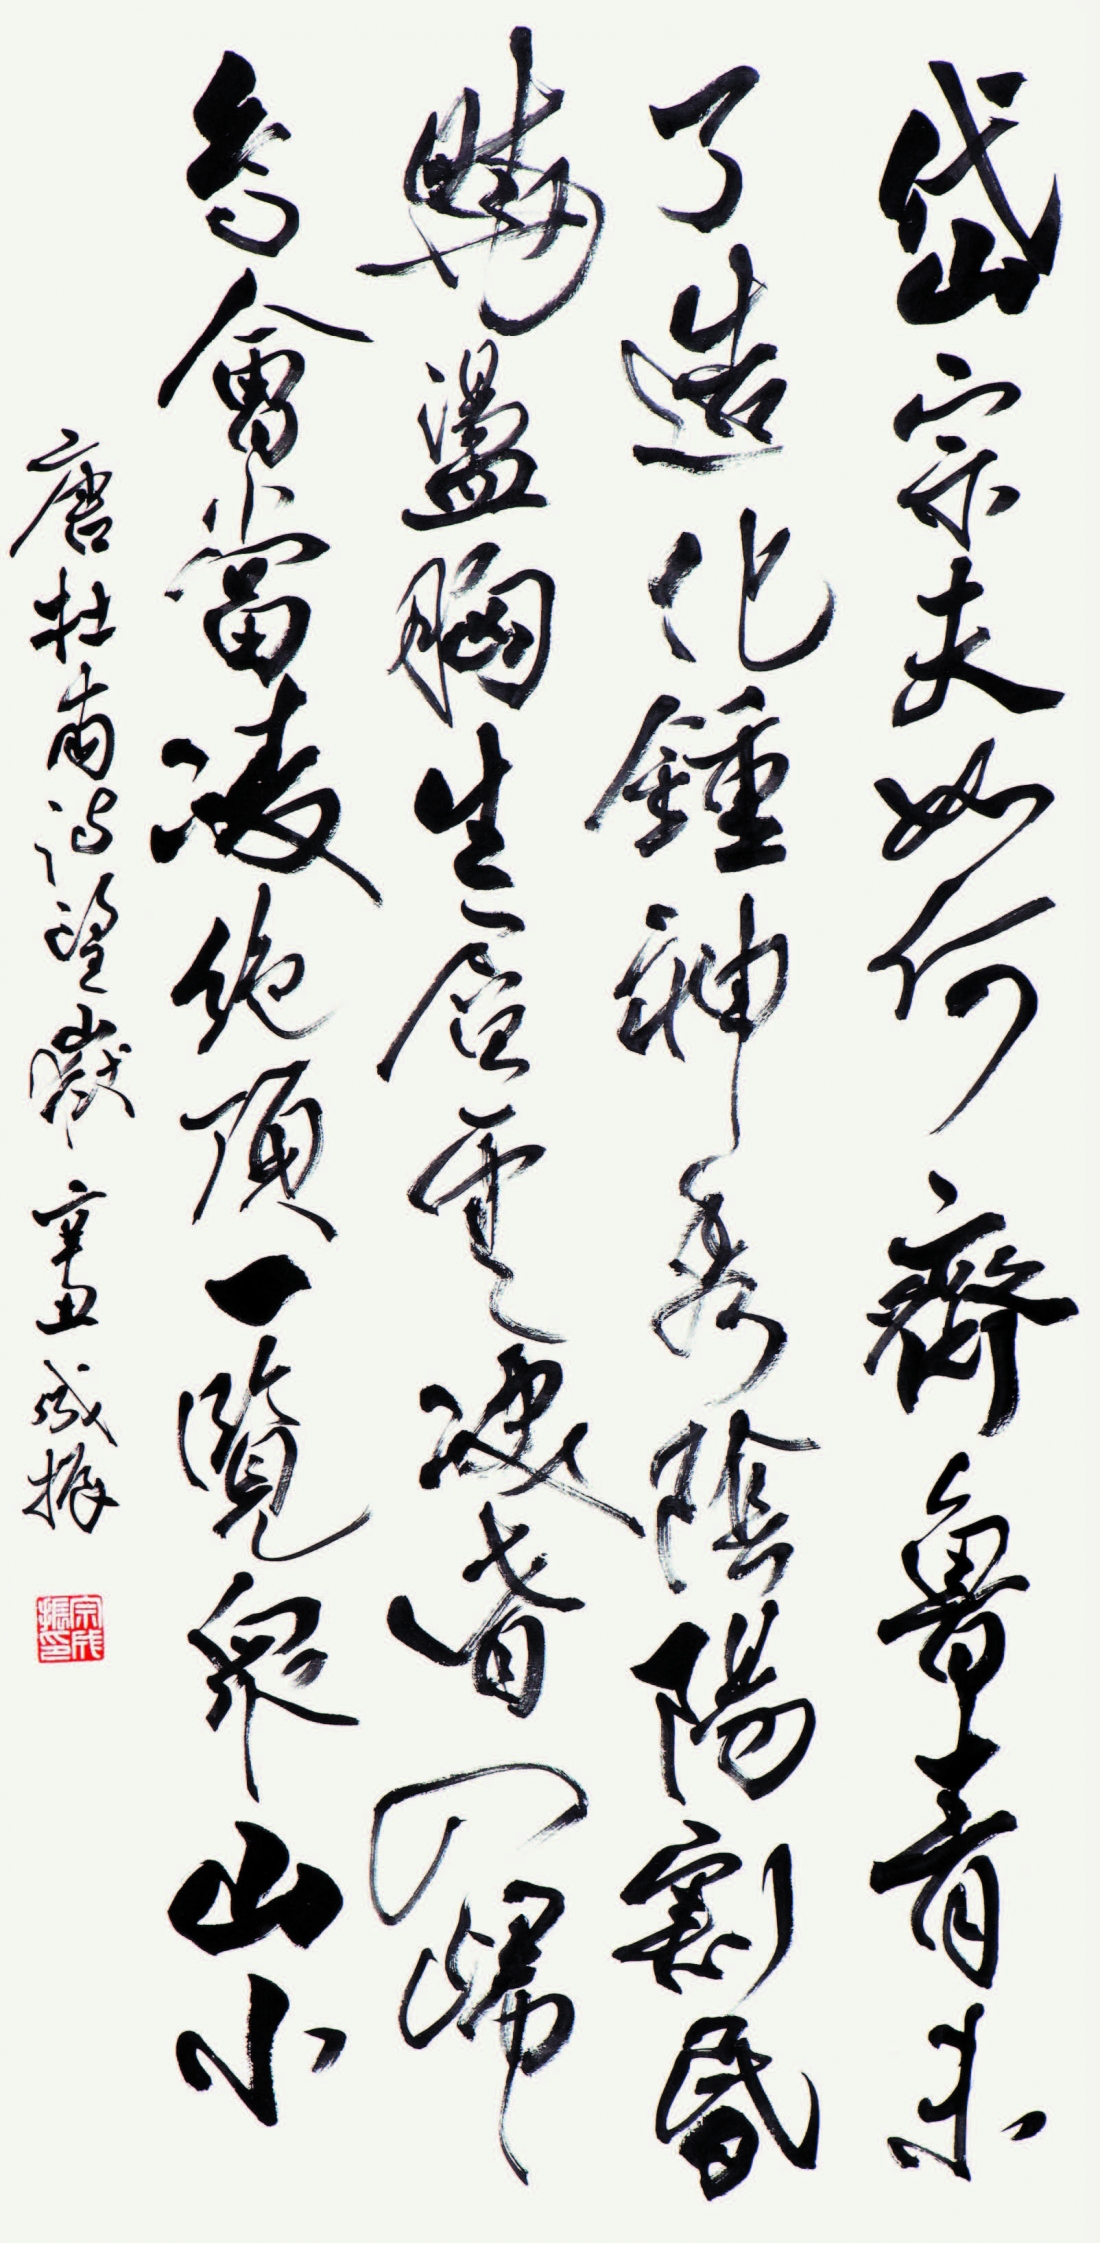 岱宗夫如何齊魯青未
了造化鍾神秀陰陽割昏
曉盪胸生層雲決眥入歸
鳥會當凌絕頂一覽眾山小
唐杜甫詩望嶽辛丑成振
宗成振印